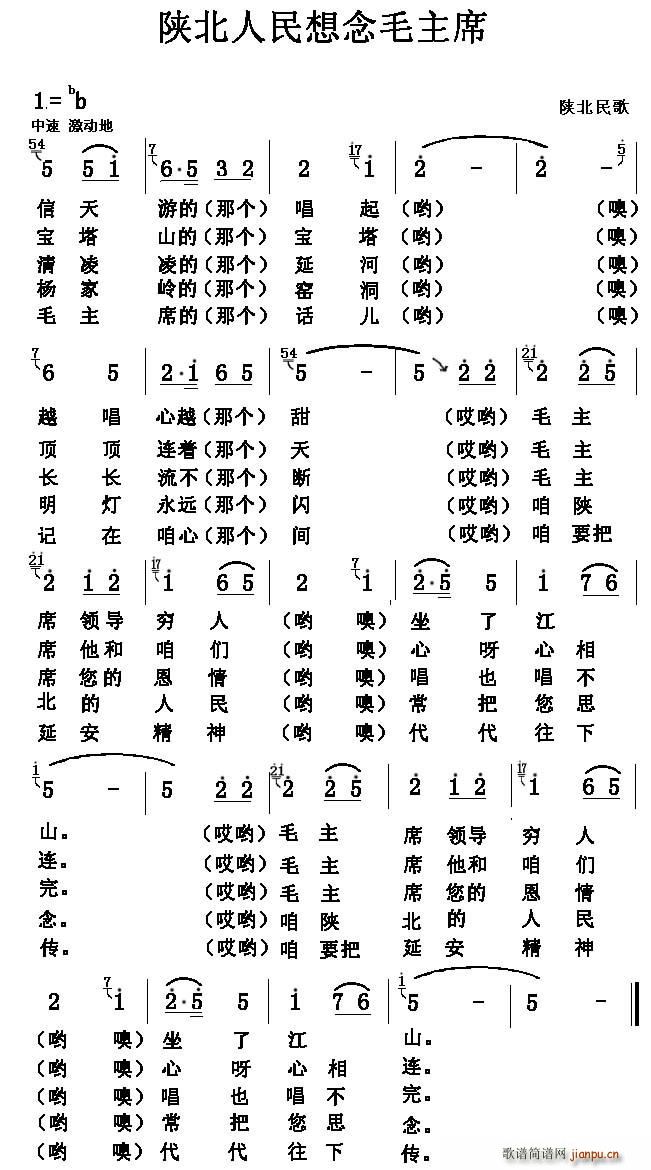 陕北人民想念毛主席
1.= ᵇb
中速 激动地
陕北民歌
54 5 5 1̇ | 7 6·5 3 2 | 2 17 1̇ | 2̇ - | 2̇ - 5
信 天 游的(那个) 唱 起 (哟) (噢)
宝 塔 山的(那个) 宝 塔 (哟) (噢)
清 凌 凌的(那个) 延 河 (哟) (噢)
杨 家 岭的(那个) 窑 洞 (哟) (噢)
毛 主 席的(那个) 话 儿 (哟) (噢)
7 6 5 | 2̇·1̇ 6 5 | 54 5 - | 5 2̇ 2̇ | 21 2̇ 2̇ 5̇
越 唱 心越(那个) 甜 (哎哟) 毛 主
顶 顶 连着(那个) 天 (哎哟) 毛 主
长 长 流不(那个) 断 (哎哟) 毛 主
明 灯 永远(那个) 闪 (哎哟) 咱 陕
记 在 咱心(那个) 间 (哎哟) 咱 要把
21 2̇ 1̇ 2̇ | 17 1̇ 6 5 | 2 7 1̇ | 2̇·5̇ 5 | 1̇ 7 6
席 领导 穷 人 (哟 噢) 坐 了 江
席 他和 咱 们 (哟 噢) 心 呀 心 相
席 您的 恩 情 (哟 噢) 唱 也 唱 不
北 的 人 民 (哟 噢) 常 把 您 思
延 安 精 神 (哟 噢) 代 代 往 下
1 5 - | 5 2̇ 2̇ | 21 2̇ 2̇ 5̇ | 2̇ 1̇ 2̇ | 17 1̇ 6 5
山。 (哎哟) 毛 主 席 领导 穷 人
连。 (哎哟) 毛 主 席 他和 咱 们
完。 (哎哟) 毛 主 席 您的 恩 情
念。 (哎哟) 咱 陕 北 的 人 民
传。 (哎哟) 咱 要把 延 安 精 神
2 7 1̇ | 2̇·5̇ 5 | 1̇ 7 6 | 1 5 - | 5 - ‖
(哟 噢) 坐 了 江 山。
(哟 噢) 心 呀 心 相 连。
(哟 噢) 唱 也 唱 不 完。
(哟 噢) 常 把 您 思 念。
(哟 噢) 代 代 往 下 传。
歌谱简谱网
jianpu.cn